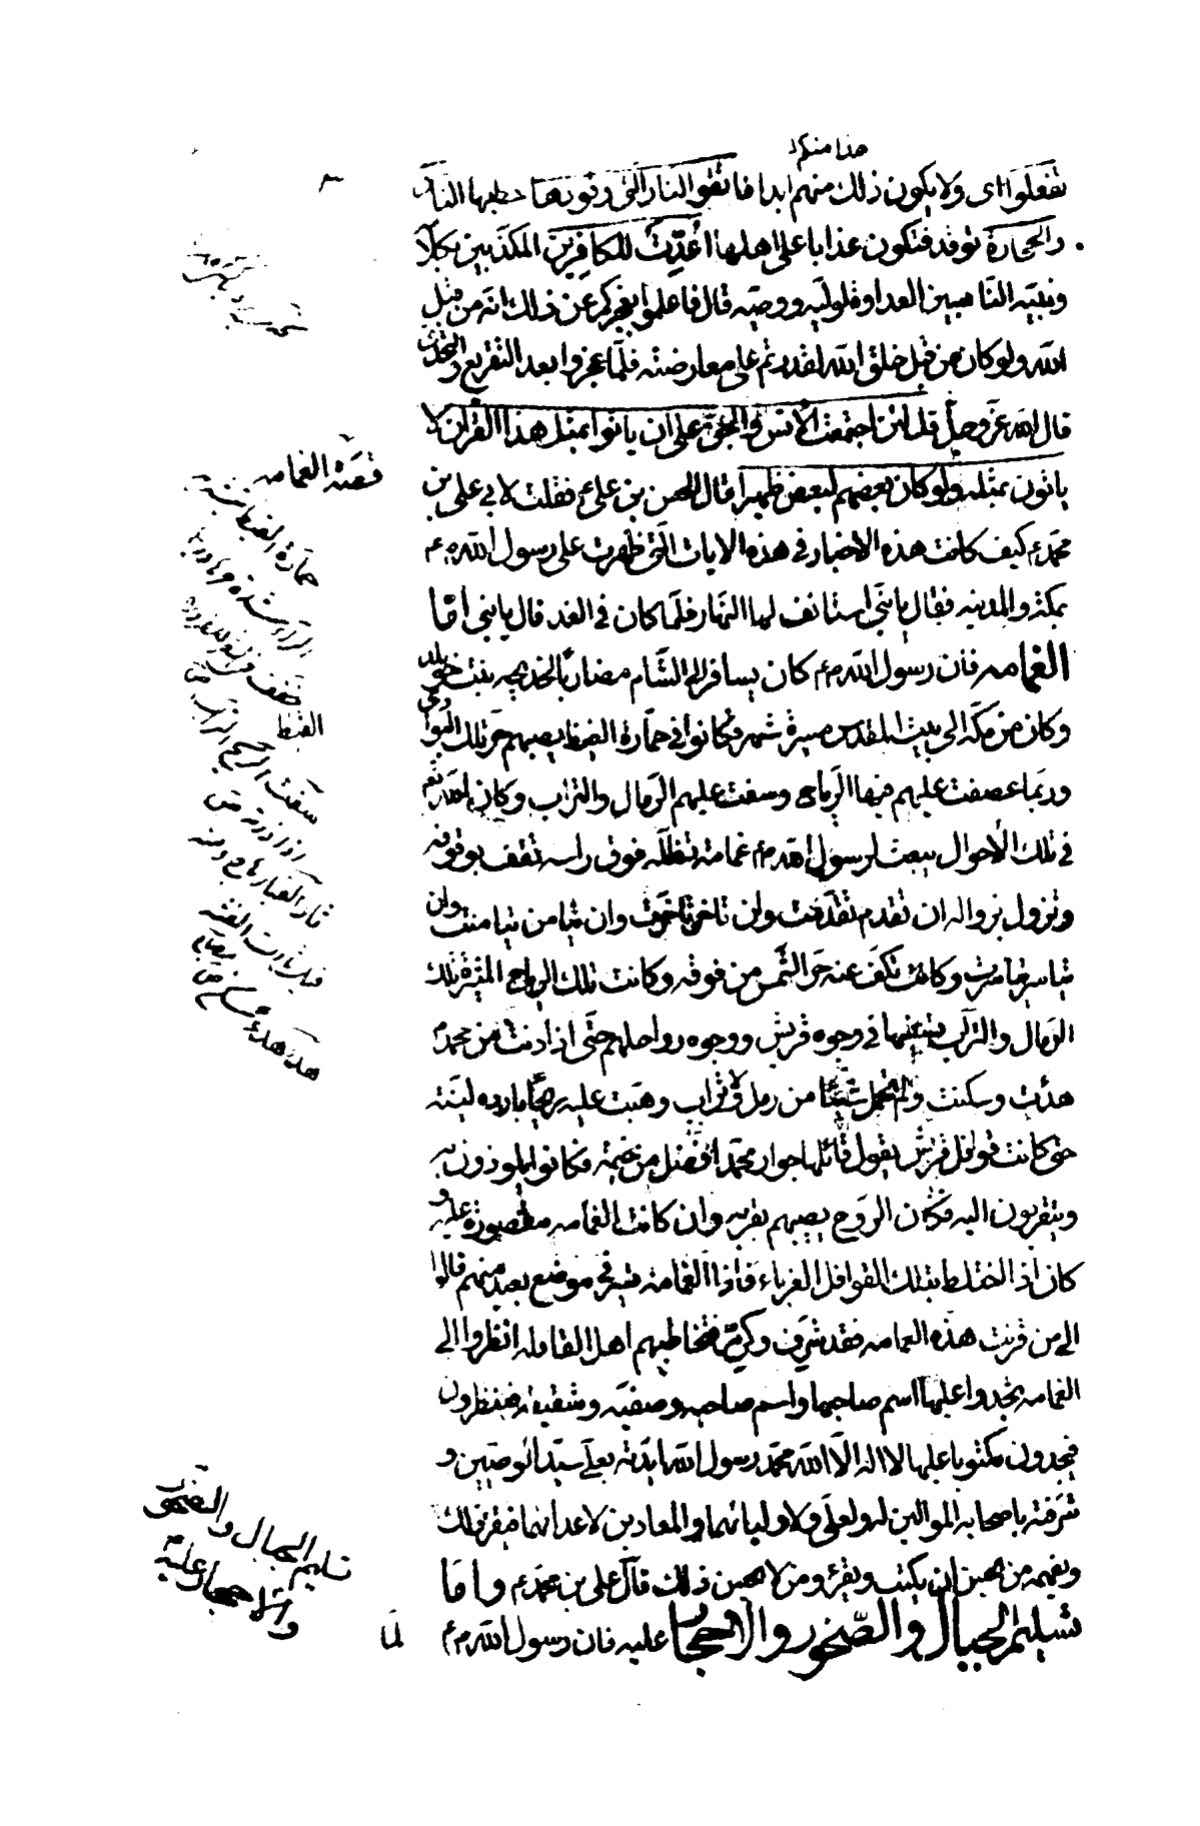 هذا منكم
تفعلوا اى ولا يكون ذلك منهم ابدا فاتقوا النار التى وقودها حطبها الناس
والحجارة توقد فتكون عذابا على اهلها اعدّت للكافرين المكذبين بكلام
ونبيّه الناصبين العداوة لوليه ووصيّه قال فاعلموا بعجزكم عن ذلك انه من قبل
الله ولو كان من قبل خلق الله لقدرتم على معارضته فلمّا عجزوا بعد التقريع والتحدى
قال الله عزّ وجلّ قل لئن اجتمعت الانس والجنّ على ان ياتوا بمثل هذا القران لا
ياتون بمثله ولو كان بعضهم لبعض ظهيرا قال الحسن بن على ع فقلت لابى على بن
محمد ع كيف كانت هذه الاخبار فى هذه الايات الّتى ظهرت على رسول الله ص ع
بمكة والمدينه فقال يا بنّى استانف لها النهار فلمّا كان فى الغد قال يا بنى امّا
الغمامه فان رسول الله ص ع كان يسافر الى الشّام مضاربًا لخديجه بنت خويلد
وكان من مكة الى بيت المقدس مسيرة شهر وكانوا فى حمّارة القيظ يصيبهم حرّ تلك البوادى
وربّما عصفت عليهم فيها الرياح وسفت عليهم الرمال والتراب وكان الله تع
فى تلك الاحوال يبعث لرسول الله ص ع غمامة تظلّه فوق راسه تقف بوقوفه
وتزول بزواله ان تقدم تقدّمت وان تاخر تاخّرت وان تيامن تيامنت وان
تياسر تياسرت وكانت تكفّ عنه حرّ الشّمس من فوقه وكانت تلك الرياح المثيرة تلك
الرمال والتراب تسفيها فى وجوه قريش ووجوه رواحلهم حتّى اذا دنت من محمد ص
هدئت وسكنت ولم تحمل شيئًا من رمل ولا تراب وهبّت عليه ريحًا بارده ليّنة
حتى كانت قوافل قريش يقول قائلها جوار محمد افضل من خيمة فكانوا يلوذون به
ويتقربون اليه فكان الرّوح يصيبهم بقربه وان كانت الغمامه مقصورة عليه و
كان اذا اختلط بتلك القوافل الغرباء فاذا الغمامة تسير فى موضع بعيد منهم قالوا
الى من قرنت هذه الغمامه فقد شرّف وكرّم فتخاطبهم اهل القافله انظروا الى
الغمامه تجدوا عليها اسم صاحبها واسم صاحبه وصفيّه وشقيقه فينظرون
فيجدون مكتوبا عليها لا اله الّا الله محمد رسول الله ايّدته بعلى سيّد الوصيين و
شرّفته باصحابه الموالين له ولعلى ولاوليائهما والمعادين لاعدائهما فيقرء ذلك
ويفهمه من يحسن ان يكتب ويقرء ومن لا يحسن ذلك قال على بن محمد ع وامّا
تسليم الجبال والصّخور والاحجار عليه فان رسول الله ص ع
لمّا
قصّة الغمامه
حمارّة القيظ
القيظ
سفت الريح التراب
تسليم الجبال والصخور
والاحجار عليه